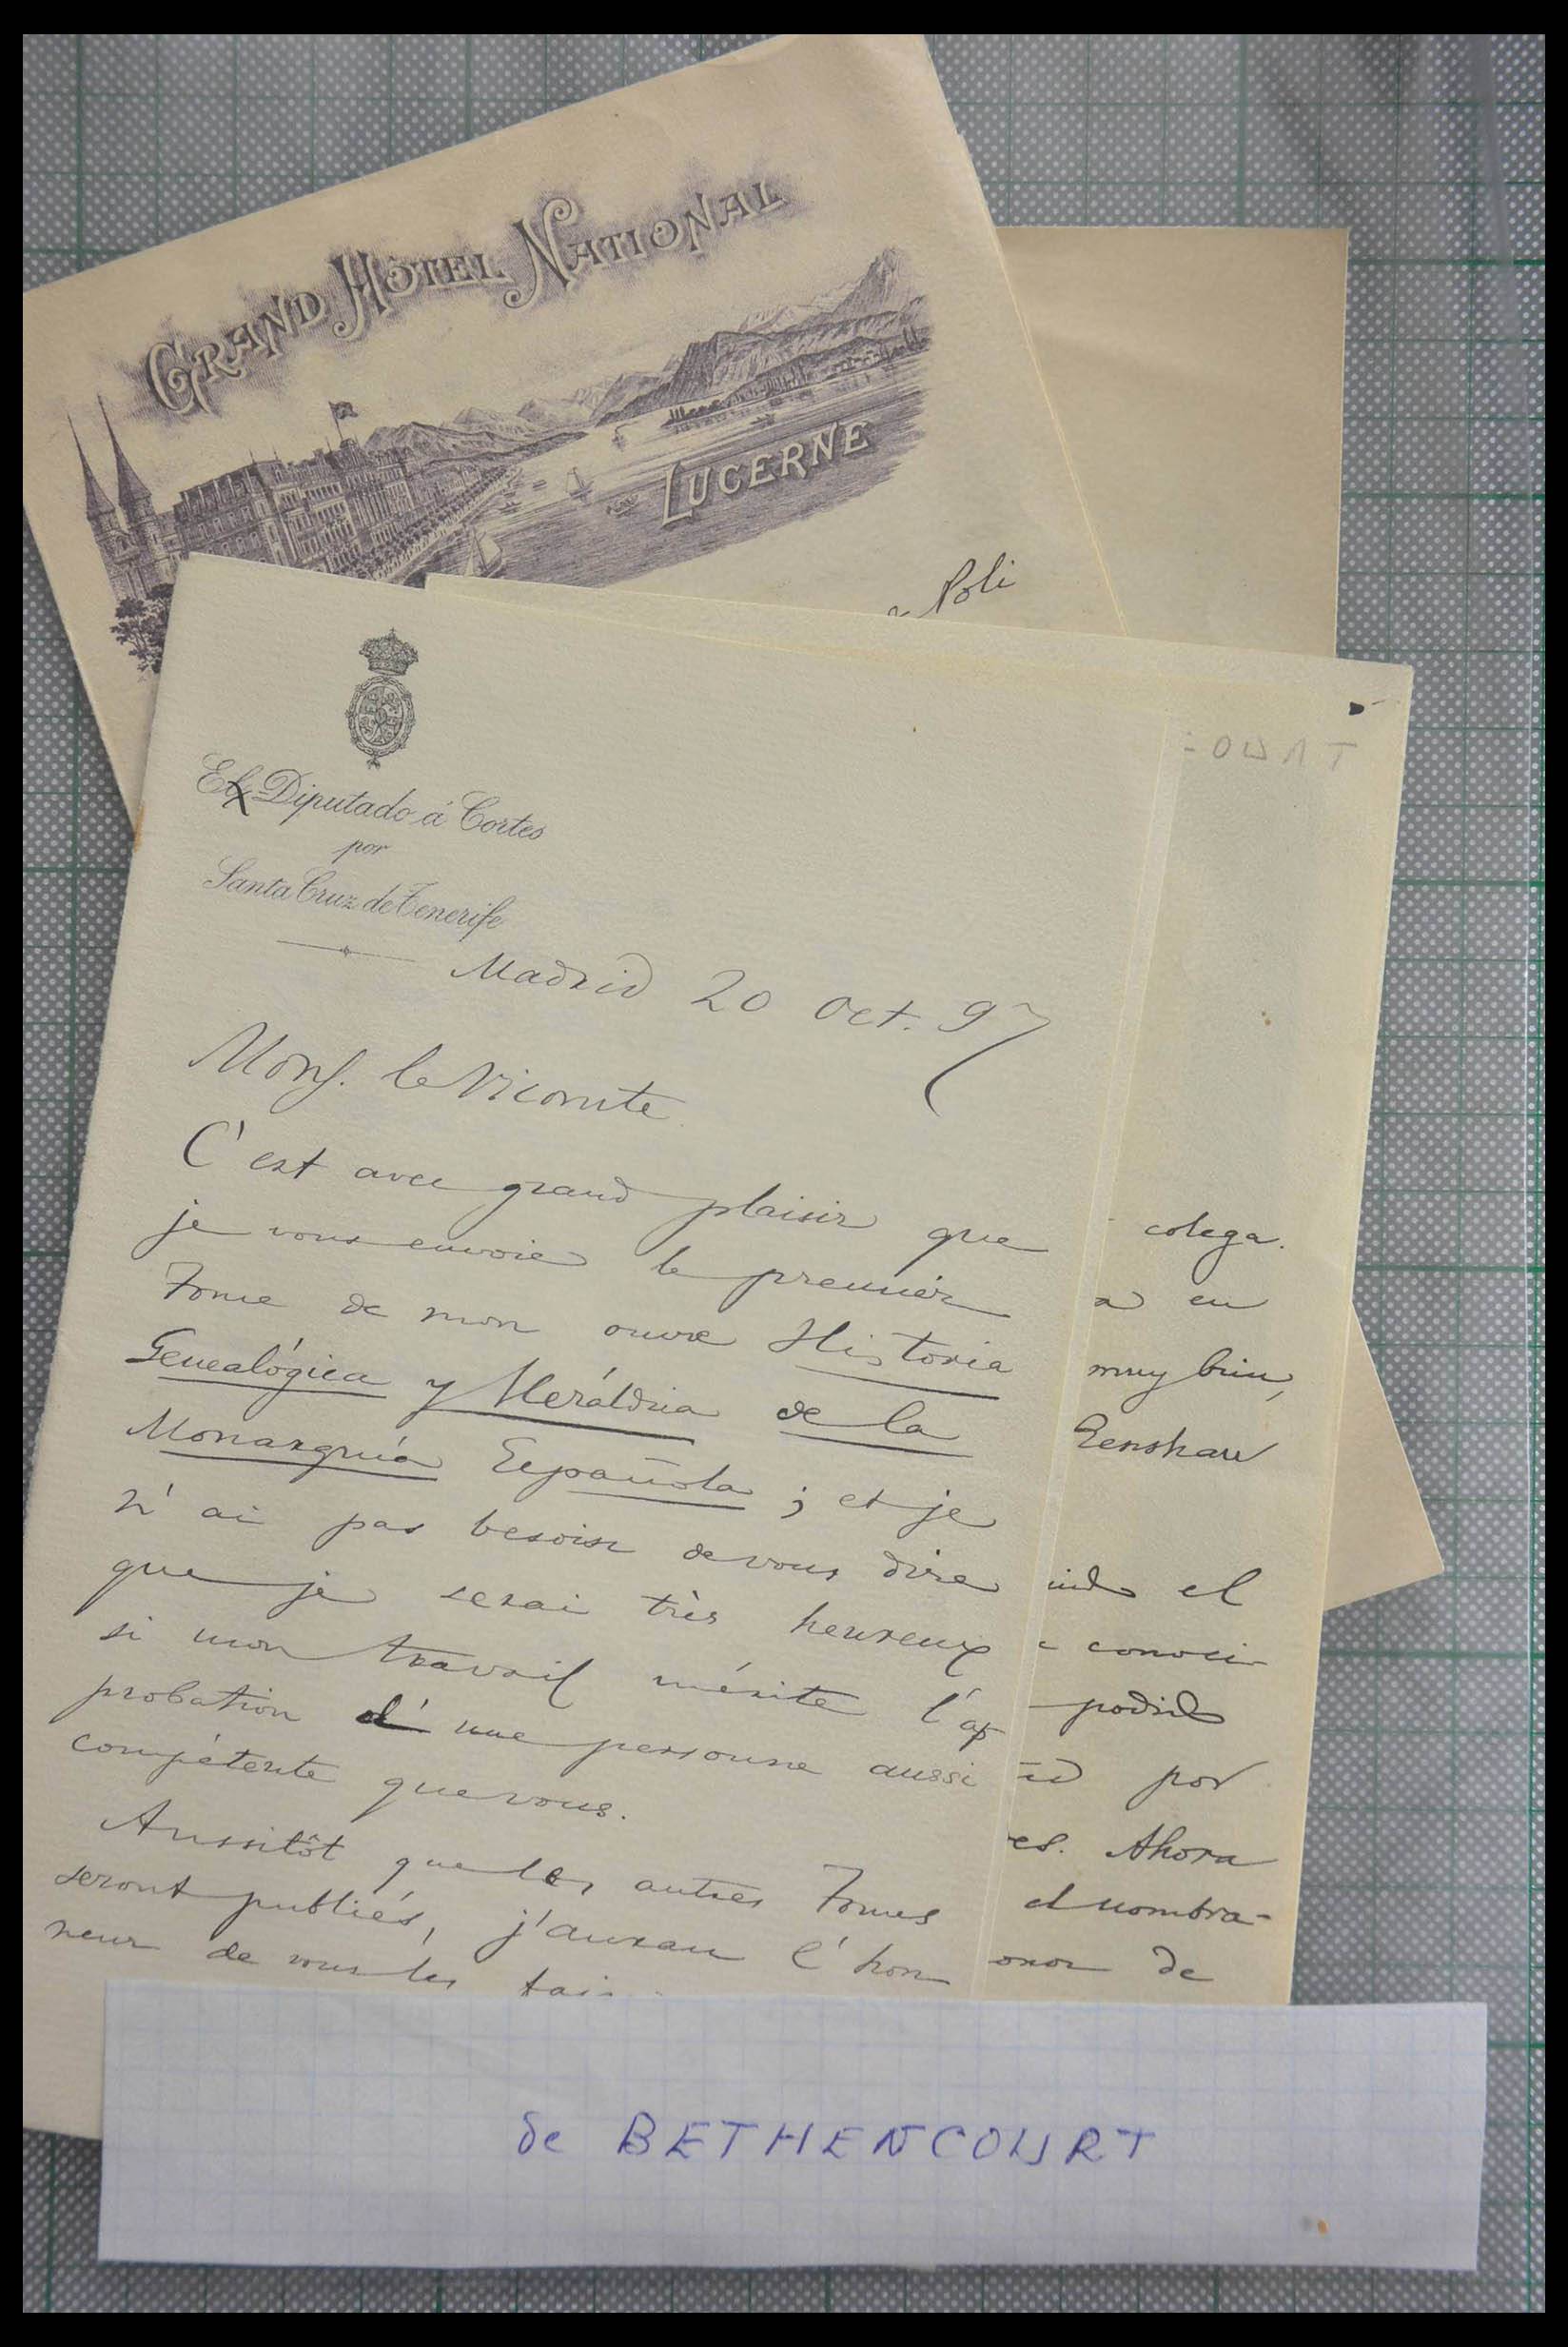 GRAND HÔTEL NATIONAL
LUCERNE
Poli
OURT
El Diputado á Cortes
por
Santa Cruz de Tenerife
Madrid 20 Oct. 97
Mons. le Vicomte
C'est avec grand plaisir que
je vous envoie le premier
Tome de mon ouvre Historia
Genealógica y Heráldica de la
Monarquía Española ; et je
n'ai pas besoin de vous dire
que je serai très heureux
si mon travail mérite l'ap
probation d'une personne aussi
compétente que vous.
Aussitôt que les autres Tomes
seront publiés, j'aurau l'hon
neur de vous les fai
colega.
en
muy bien,
el
conocer
podido
por
es. Ahora
el nombra-
onor de
de BETHENCOURT